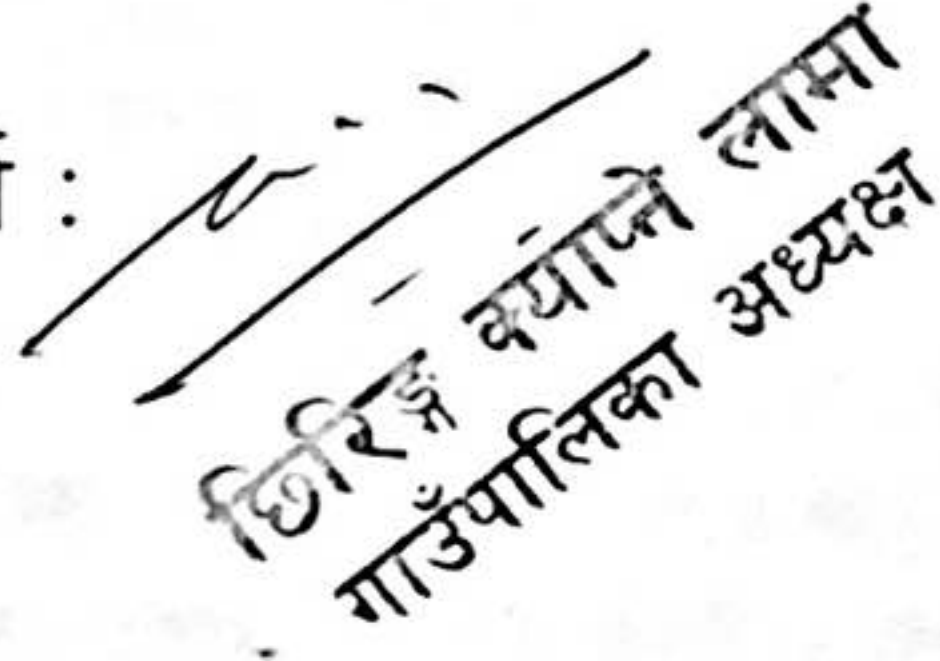 छिरिङ्ग क्याप्ने लामा
गाउँपालिका अध्यक्ष